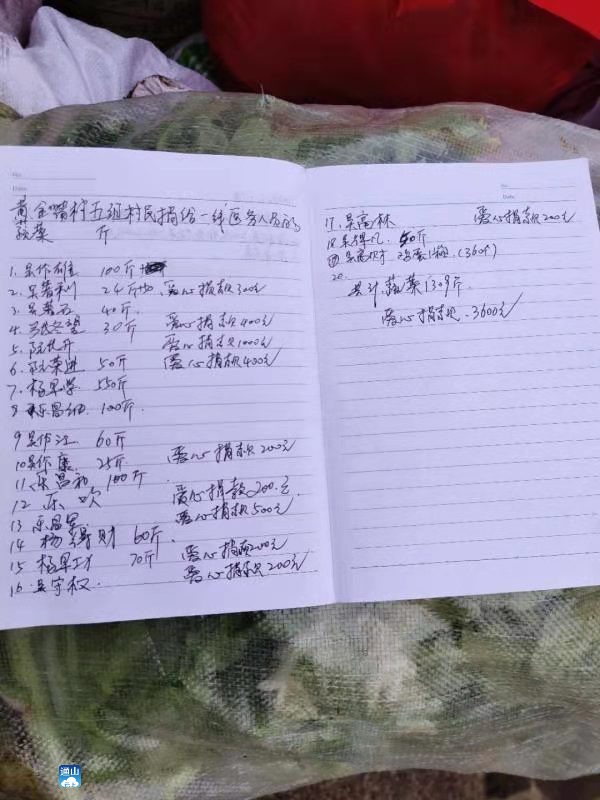 No.
Date
黄金嘴村五组村民捐给一线医务人员的
蔬菜 斤
1. 吴作雄 100斤
2. 吴善利 24斤 爱心捐款300元
3. 吴善石 40斤
4. 30斤 爱心捐款400元
5. 阮长开 爱心捐款1000元
6. 阮荣进 50斤 爱心捐款400元
7. 杨早学 550斤
8. 乐昌 100斤
9 吴作江 60斤
10 吴作康 25斤 爱心捐款200元
11 乐昌和 100斤
12 乐 吹 爱心捐款200元
13 乐昌军 爱心捐款500元
14 杨得财 60斤
15 杨早才 70斤 爱心捐款200元
16 吴守权 爱心捐款200元
No.
Date
17. 吴高林 爱心捐款200元
18 50斤
19 吴高财 鸡蛋1箱 (360个)
20
共计 蔬菜1309斤
爱心捐款 3600元
通山